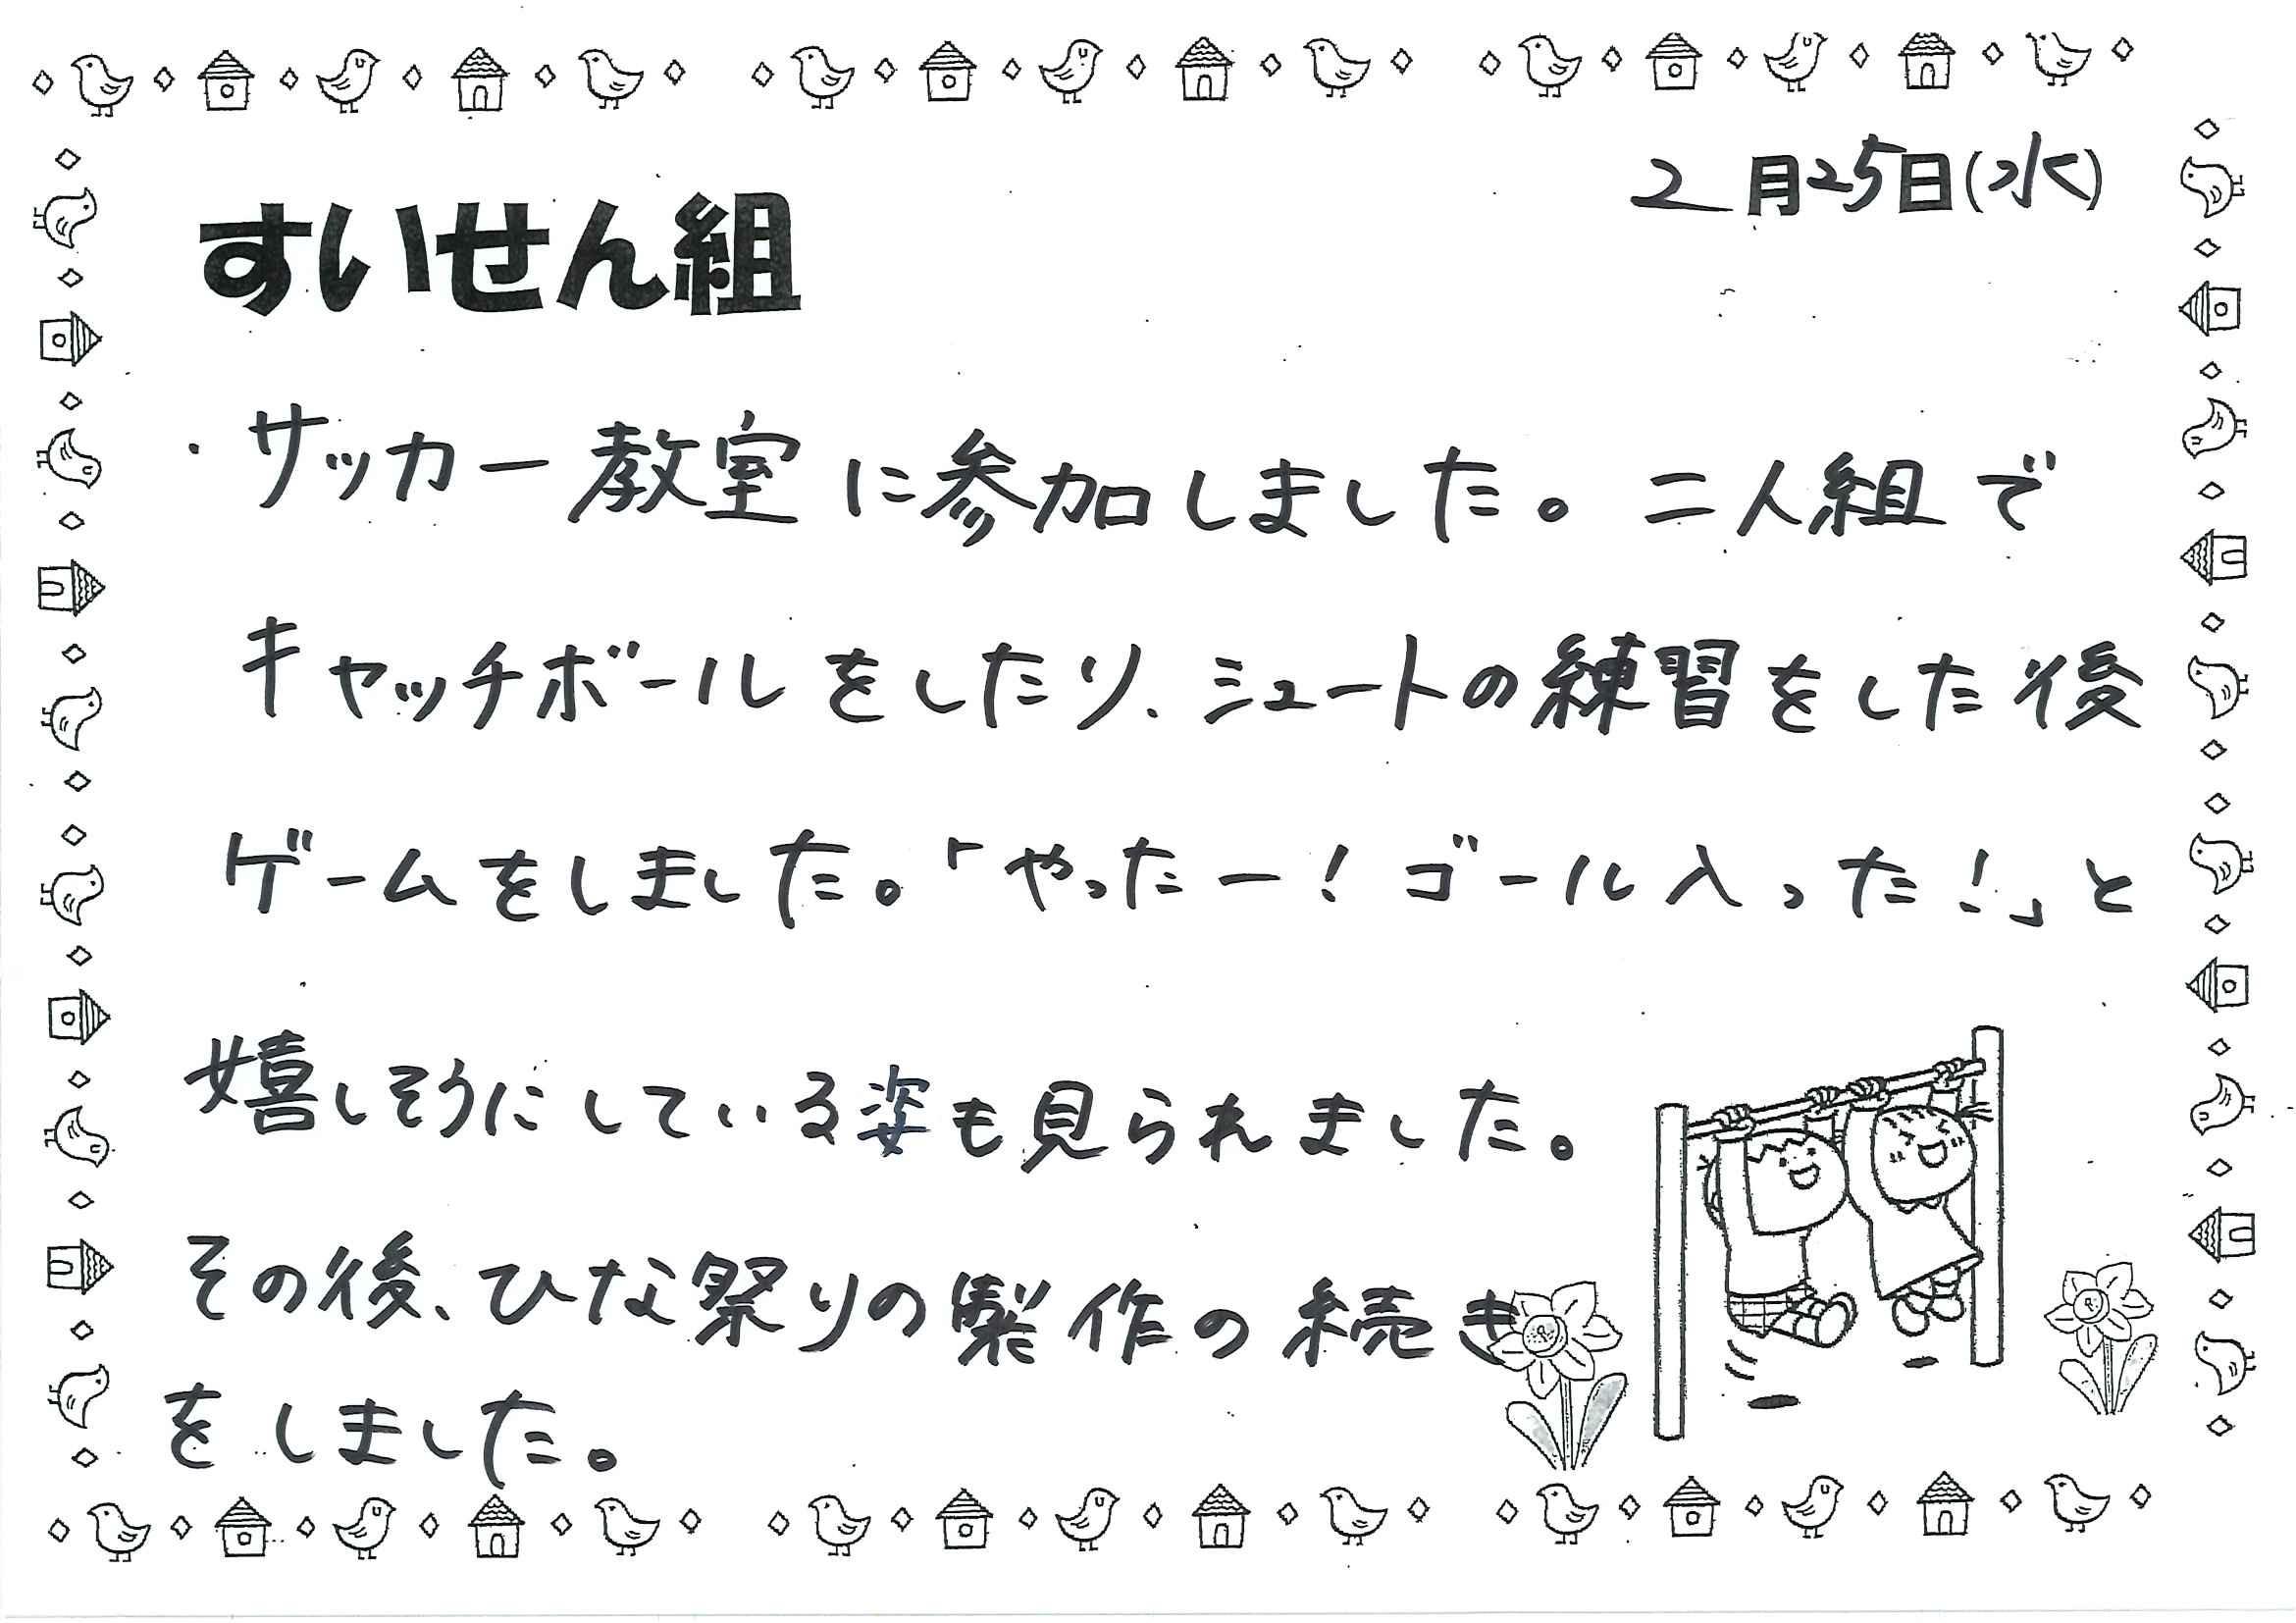 2月25日(水)
すいせん組
・サッカー教室に参加しました。二人組で
キャッチボールをしたり、シュートの練習をした後
ゲームをしました。「やったー!ゴール入った!」と
嬉しそうにしている姿も見られました。
その後、ひな祭りの製作の続き
をしました。